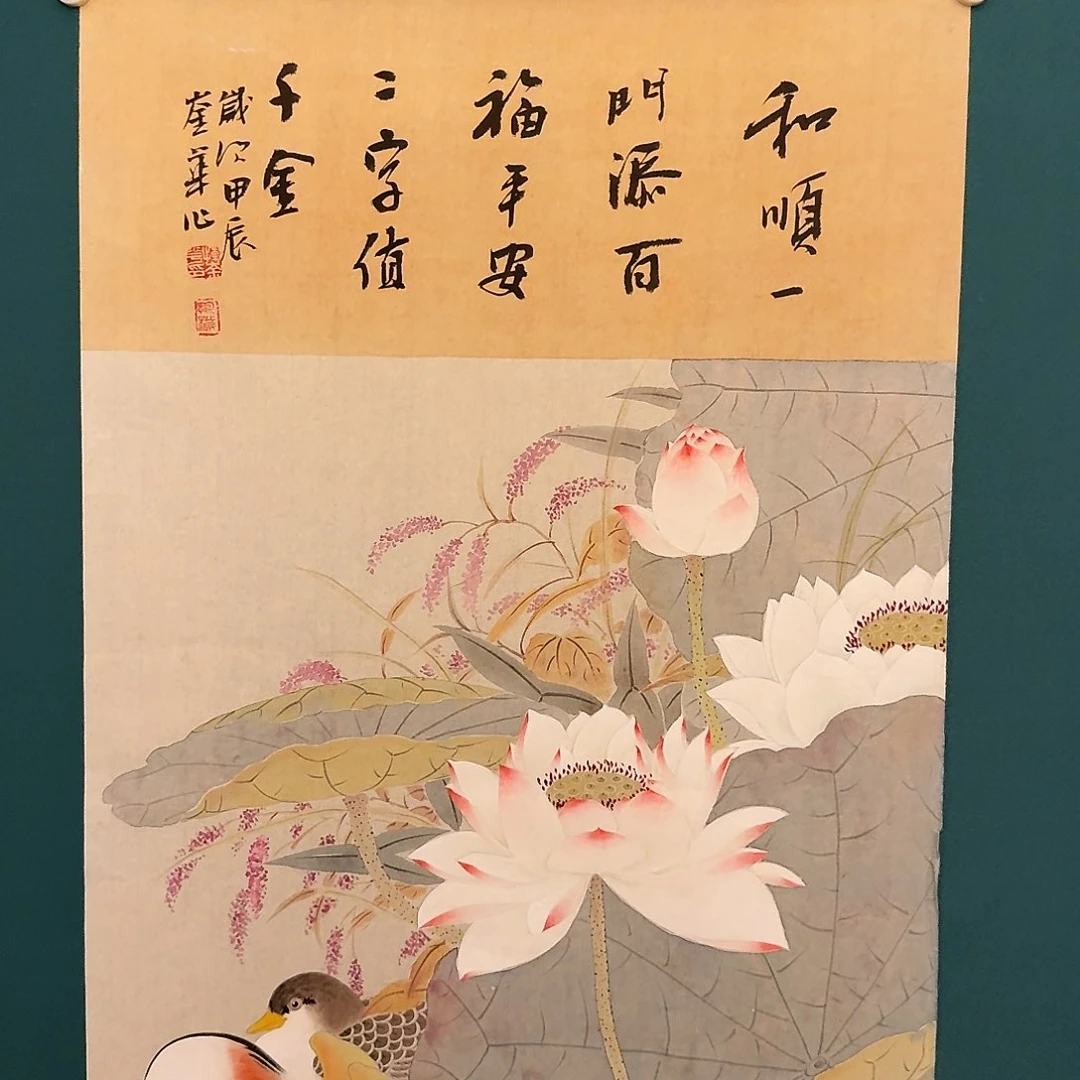 和順一
門添百
福平安
二字值
千金
歲次甲辰
奎華作